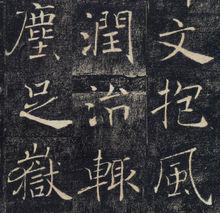 文抱風
潤治輒
塵足嶽